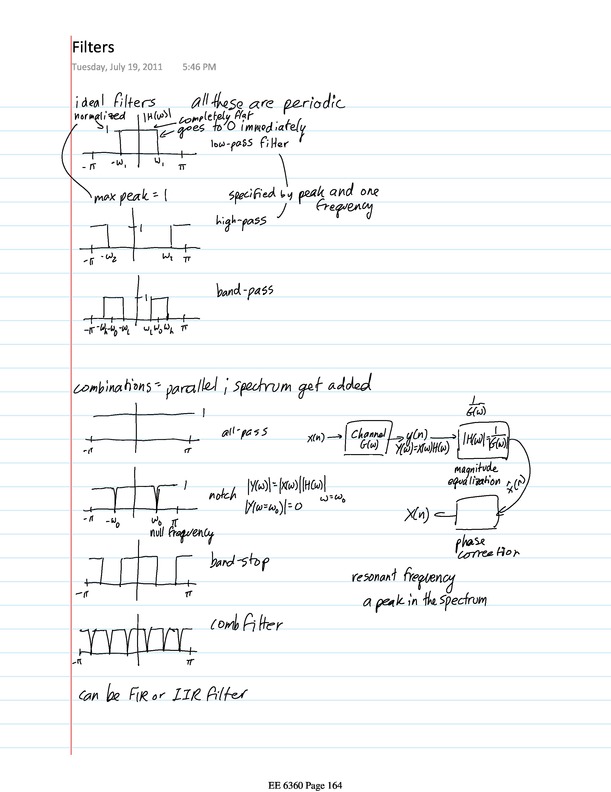 Filters
Tuesday, July 19, 2011 5:46 PM
ideal filters all these are periodic
normalized |H(ω)| completely flat
1 goes to 0 immediately
low-pass filter
-π -ω₁ ω₁ π
max peak = 1 specified by peak and one frequency
high-pass
1
-π -ω₂ ω₂ π
band-pass
1
-π -ωₕ -ω₀ -ωₗ ωₗ ω₀ ωₕ π
combinations = parallel ; spectrum get added
1
all-pass
-π π
x(n) → Channel G(ω) → y(n)
Y(ω)=X(ω)H(ω)
1/G(ω)
|H(ω)|=1/|G(ω)|
magnitude equalization
x̂(n)
X(n)
phase correction
1
notch |Y(ω)|=|X(ω)||H(ω)|
|Y(ω=ω₀)|=0 ω=ω₀
-π -ω₀ ω₀ π
null frequency
band-stop
-π π
resonant frequency
a peak in the spectrum
comb filter
-π π
can be FIR or IIR filter
EE 6360 Page 164